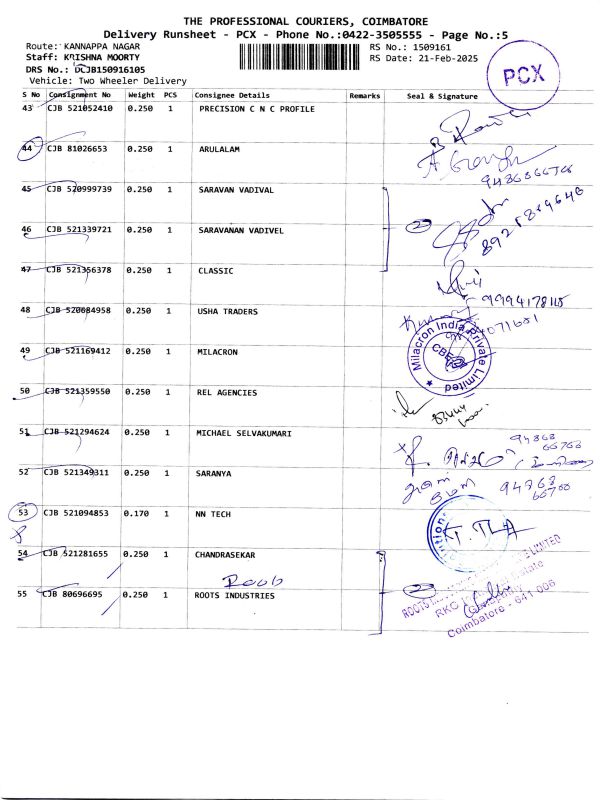 THE PROFESSIONAL COURIERS, COIMBATORE
Delivery Runsheet - PCX - Phone No.:0422-3505555 - Page No.:5
Route: KANNAPPA NAGAR
RS No.: 1509161
Staff: KRISHNA MOORTY
RS Date: 21-Feb-2025
DRS No.: DCJB150916105
Vehicle: Two Wheeler Delivery
PCX
S No Consignment No Weight PCS Consignee Details Remarks Seal & Signature
43 CJB 521052410 0.250 1 PRECISION C N C PROFILE
44 CJB 81026653 0.250 1 ARULALAM
45 CJB 520999739 0.250 1 SARAVAN VADIVAL
46 CJB 521339721 0.250 1 SARAVANAN VADIVEL
2
47 CJB 521356378 0.250 1 CLASSIC
48 CJB 520684958 0.250 1 USHA TRADERS
9994178115
49 CJB 521169412 0.250 1 MILACRON
Milacron India Private Limited
CBE
50 CJB 521359550 0.250 1 REL AGENCIES
51 CJB 521294624 0.250 1 MICHAEL SELVAKUMARI
94868
66766
52 CJB 521349311 0.250 1 SARANYA
94868
66766
53 CJB 521094853 0.170 1 NN TECH
54 CJB 521281655 0.250 1 CHANDRASEKAR
2
55 CJB 80696695 0.250 1 ROOTS INDUSTRIES
Coimbatore - 641 006